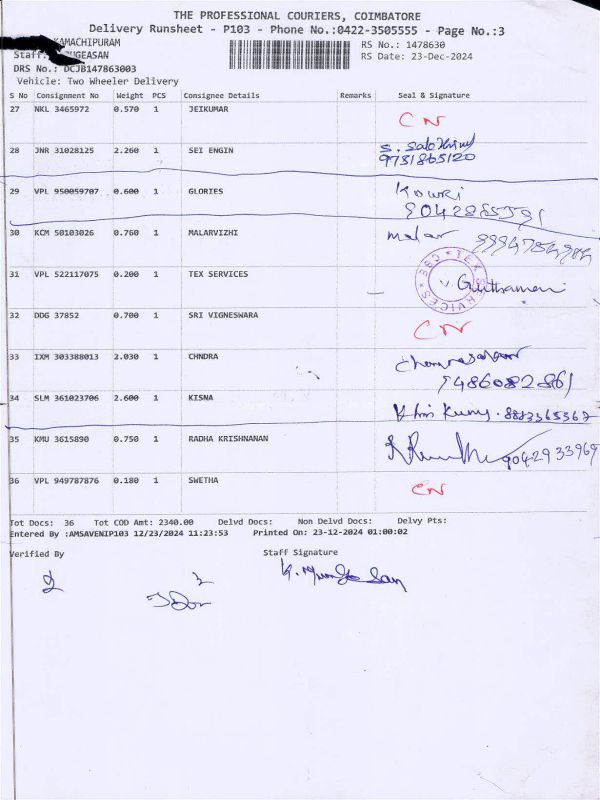 THE PROFESSIONAL COURIERS, COIMBATORE
Delivery Runsheet - P103 - Phone No.:0422-3505555 - Page No.:3
KAMACHIPURAM
RS No.: 1478630
Staff: UGEASAN
RS Date: 23-Dec-2024
DRS No.: DCJB147863003
Vehicle: Two Wheeler Delivery
S No Consignment No Weight PCS Consignee Details Remarks Seal & Signature
27 NKL 3465972 0.570 1 JEIKUMAR CN
28 JNR 31028125 2.260 1 SEI ENGIN
9731865120
29 VPL 950059707 0.600 1 GLORIES Kowri
9042885591
30 KCM 50103026 0.760 1 MALARVIZHI malar
31 VPL 522117075 0.200 1 TEX SERVICES
CBE TEX SERVICES
32 DDG 37852 0.700 1 SRI VIGNESWARA CN
33 IXM 303388013 2.030 1 CHNDRA
9486082861
34 SLM 361023706 2.600 1 KISNA 8883365367
35 KMU 3615890 0.750 1 RADHA KRISHNANAN 9042933969
36 VPL 949787876 0.180 1 SWETHA CN
Tot Docs: 36 Tot COD Amt: 2340.00 Delvd Docs: Non Delvd Docs: Delvy Pts:
Entered By :AMSAVENIP103 12/23/2024 11:23:53 Printed On: 23-12-2024 01:00:02
Verified By Staff Signature